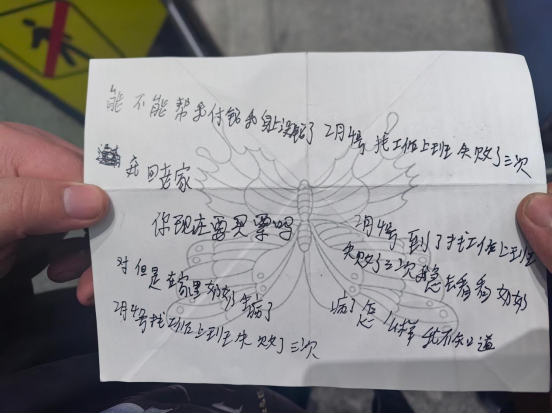 能不能帮我付钱我身上没钱了2月4号找工作上班失败了三次
在回老家
你现在要见票吗
2月4号到了找工作上班
失败了三次想急去看看奶奶
对但是老家里奶奶生病了
病了怎么样我不知道
2月4号找工作上班失败了三次